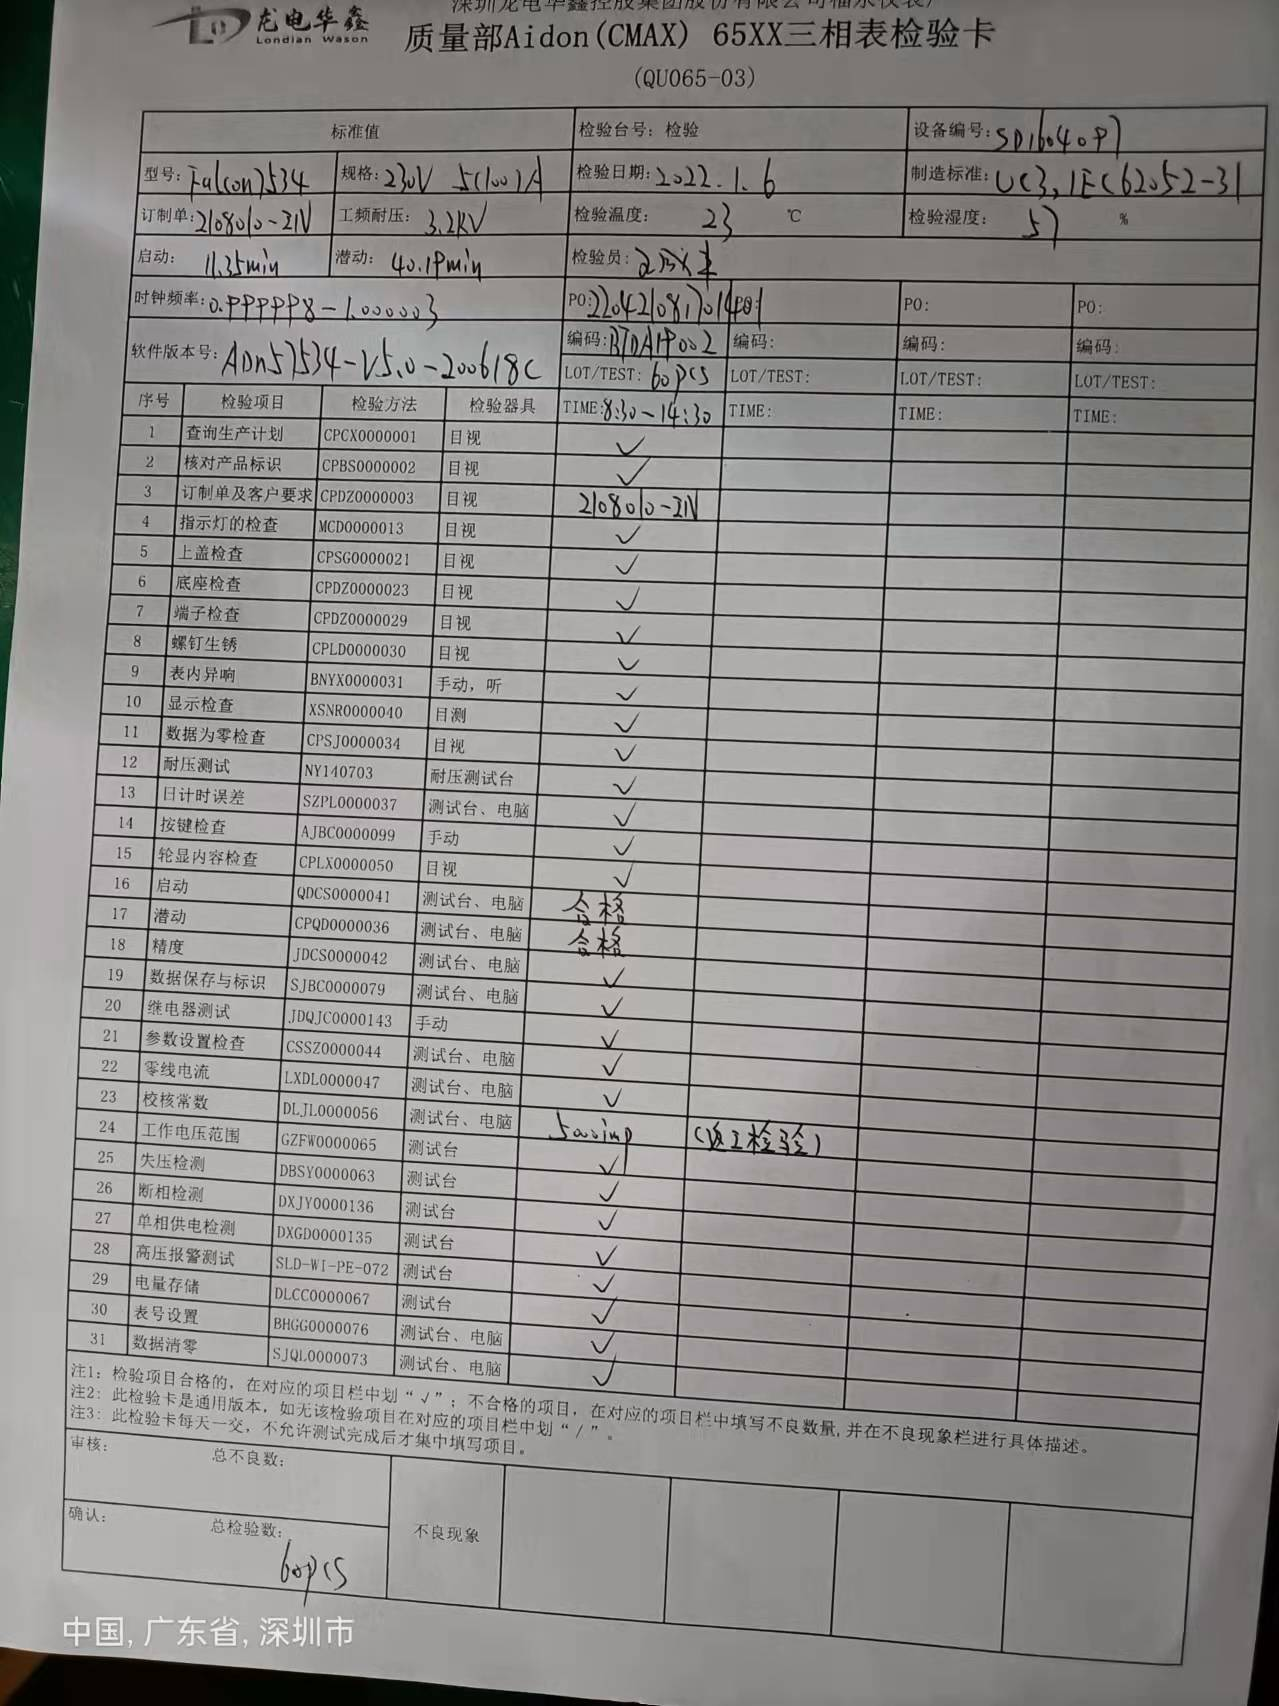 龙电华鑫
Londian Wason
深圳龙电华鑫控股集团股份有限公司福永仪表厂
质量部Aidon(CMAX) 65XX三相表检验卡
(QU065-03)
标准值 检验台号: 检验 设备编号: SD16040P7
型号: Falcon7534 规格: 230V 5(100)A 检验日期: 2022.1.6 制造标准: UC3,IEC62052-31
订制单: 2108010-ZIV 工频耐压: 3.2KV 检验温度: 23 ℃ 检验湿度: 57 %
启动: 11.35min 潜动: 40.19min 检验员:
时钟频率: 0.999998-1.000003 PO: PO: PO:
软件版本号: ADn57534-V5.0-200618C 编码: BTDA19002 编码: 编码: 编码:
LOT/TEST: 60pcs LOT/TEST: LOT/TEST: LOT/TEST:
序号 检验项目 检验方法 检验器具 TIME: 8:30-14:30 TIME: TIME: TIME:
1 查询生产计划 CPCX0000001 目视 ✓
2 核对产品标识 CPBS0000002 目视 ✓
3 订制单及客户要求 CPDZ0000003 目视 2108010-ZIV
4 指示灯的检查 MCD0000013 目视 ✓
5 上盖检查 CPSG0000021 目视 ✓
6 底座检查 CPDZ0000023 目视 ✓
7 端子检查 CPDZ0000029 目视 ✓
8 螺钉生锈 CPLD0000030 目视 ✓
9 表内异响 BNYX0000031 手动, 听 ✓
10 显示检查 XSNR0000040 目测 ✓
11 数据为零检查 CPSJ0000034 目视 ✓
12 耐压测试 NY140703 耐压测试台 ✓
13 日计时误差 SZPL0000037 测试台、电脑 ✓
14 按键检查 AJBC0000099 手动 ✓
15 轮显内容检查 CPLX0000050 目视 ✓
16 启动 QDCS0000041 测试台、电脑 合格
17 潜动 CPQD0000036 测试台、电脑 合格
18 精度 JDCS0000042 测试台、电脑 ✓
19 数据保存与标识 SJBC0000079 测试台、电脑 ✓
20 继电器测试 JDQJC0000143 手动 ✓
21 参数设置检查 CSSZ0000044 测试台、电脑 ✓
22 零线电流 LXDL0000047 测试台、电脑 ✓
23 校核常数 DLJL0000056 测试台、电脑 5000imp (返工检验)
24 工作电压范围 GZFW0000065 测试台 ✓
25 失压检测 DBSY0000063 测试台 ✓
26 断相检测 DXJY0000136 测试台 ✓
27 单相供电检测 DXGD0000135 测试台 ✓
28 高压报警测试 SLD-WI-PE-072 测试台 ✓
29 电量存储 DLCC0000067 测试台 ✓
30 表号设置 BHGG0000076 测试台、电脑 ✓
31 数据清零 SJQL0000073 测试台、电脑 ✓
注1: 检验项目合格的, 在对应的项目栏中划“√”; 不合格的项目, 在对应的项目栏中填写不良数量, 并在不良现象栏进行具体描述。
注2: 此检验卡是通用版本, 如无该检验项目在对应的项目栏中划“/”。
注3: 此检验卡每天一交, 不允许测试完成后才集中填写项目。
审核: 总不良数:
确认: 总检验数: 60pcs 不良现象
中国, 广东省, 深圳市